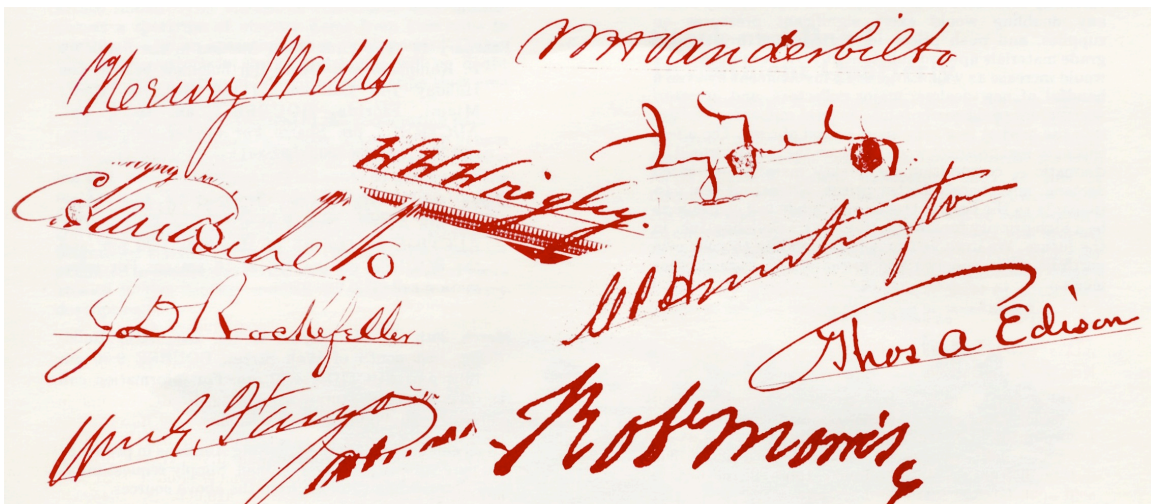 Henry Wells
W H Vanderbilt
Jay Gould
W W Wrigley.
C. Vanderbilt
C P Huntington
J. D. Rockefeller
Thos A Edison
Wm G. Fargo
Robt Morris